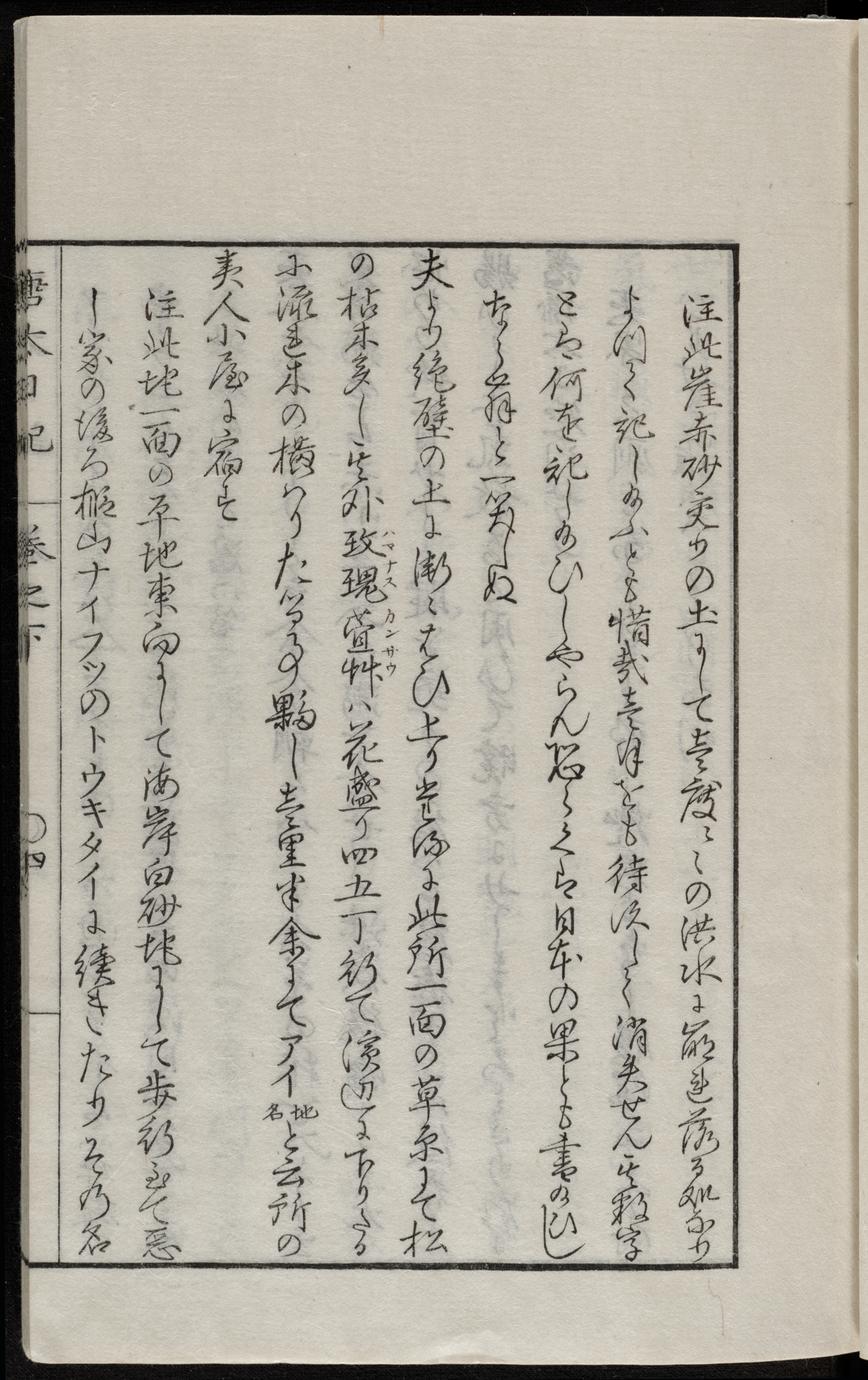 注此崖赤砂交りの土にして壱度〻の洪水に崩れ落る処なり
よつて記し給ふとも惜哉壱月をも待次して消失せん其数字
とは何を記し給ひしやらん恐らくは日本の果とも書給ひし
ならん拝と一笑しぬ
夫より絶壁の上に漸〻はひ上り登る
に此所一面の草原にて松
の枯木多し其外玫瑰萱艸ハ花盛り四五丁行て濱辺に下りたる
ハマナス カンザウ
に流れ木の横ハりたる事夥し壱里半余にてアイ地名と云所の
夷人小屋に宿す
注此地一面の平地東向にして海岸白砂地にして歩行至て悪
し家の後ろ椴山ナイフツのトウキタイに續きたりその名
唐太日記 巻之下 〇四